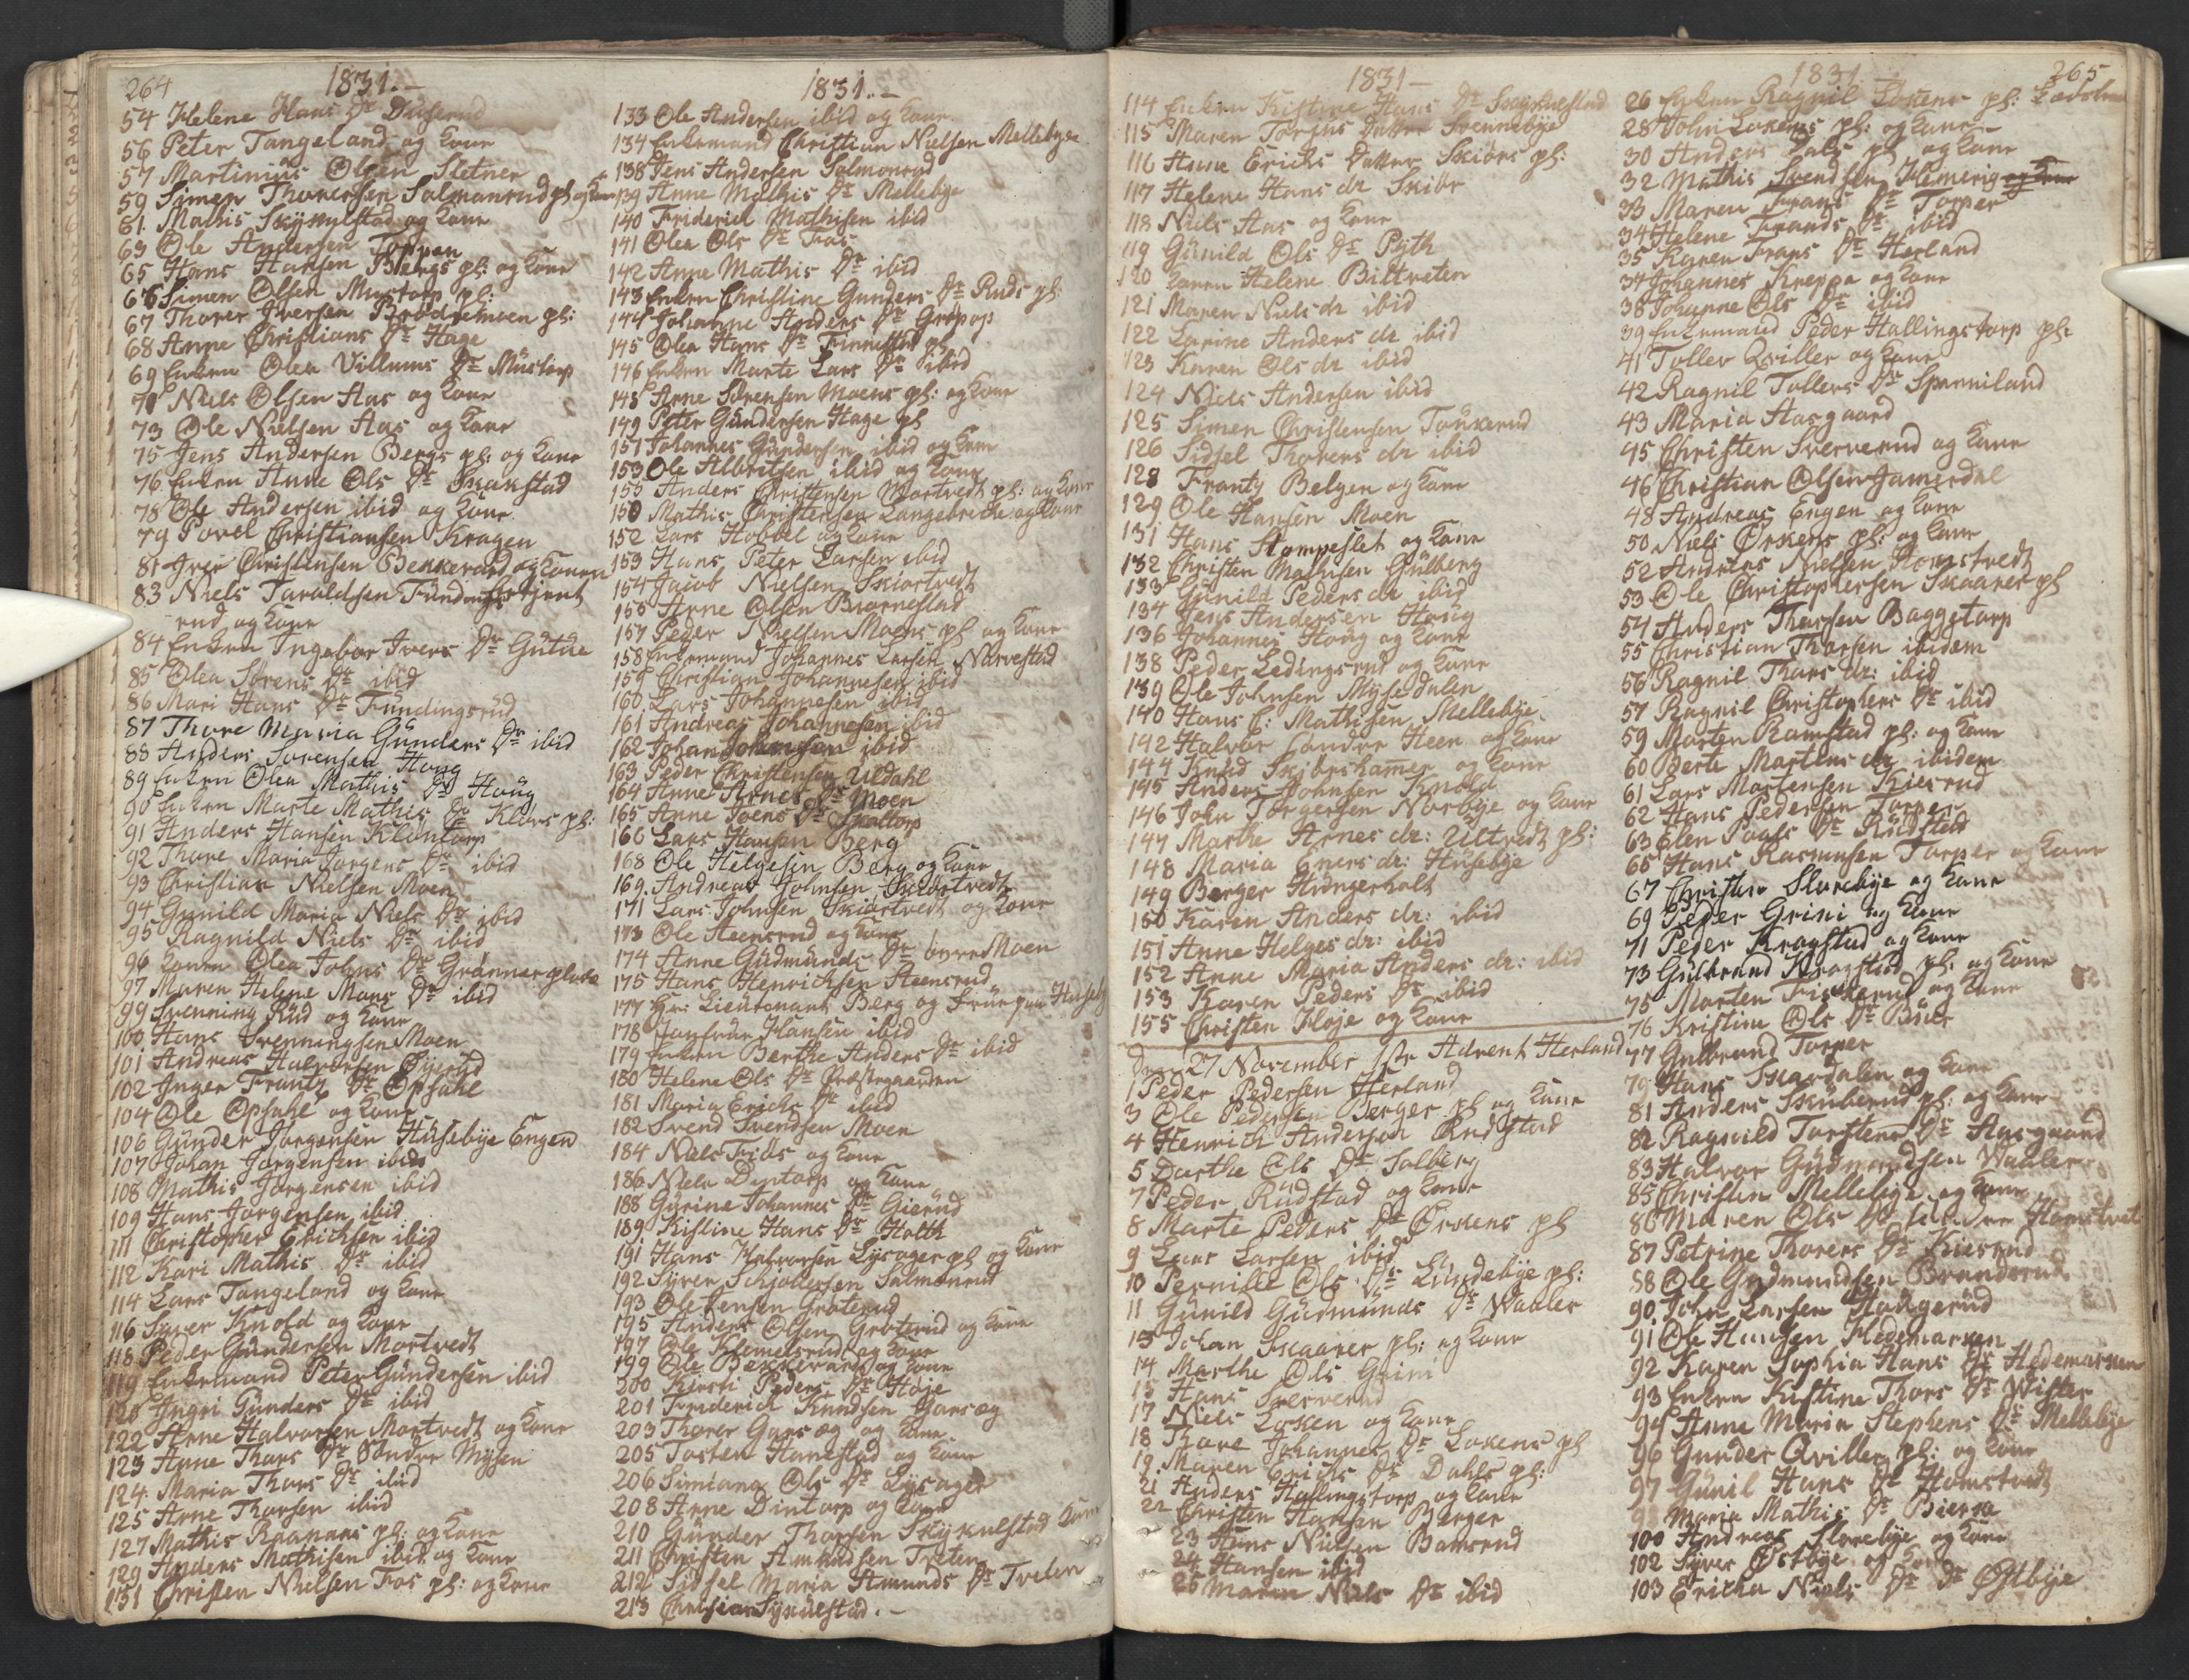 264
1831.-
54 Helene Hans Dr Duserud
56 Peter Tangeland og Kone
57 Martinius Olsen Sletner
59 Simen Thorersen Salmonrud pl og Kone
61 Mathis Skÿkulstad og Kone
63 Ole Andersen Toppen
65 Hans Hansen Bergs pl: og Kone
66 Simen Olsen Mustorp pl:
67 Thorer Iversen Brødremoen pl:
68 Anne Christians Dr Hage
69 Enken Olea Villums Dr Müstorp
71 Niels Olsen Aas og Kone
73 Ole Nielsen Aas og Kone
75 Jens Andersen Bergs pl: og Kone
76 Enken Anne Ols Dr Skakstad
78 Ole Andersen ibid og Kone
79 Povel Christiansen Kragen
81 Iver Christensen Bekkevard og Konen
83 Niels Taraldsen Fündings
rud og Kone
84 Enken Ingebor Ivers Dr Gütue
85 Olea Sørens Dr ibid
86 Mari Hans Dr Fündingsrüd
87 Thore Maria Günders Dr ibid
88 Anders Sørensen Houg
89 Enken Olea Mathis Dr Houg
90 Enken Marte Mathis Dr Kløvs pl:
91 Anders Hansen Klontorp
92 Thore Maria Jørgens Dr ibid
93 Christian Nielsen Moen
94 Gunild Maria Niels Dr ibid
95 Ragnild Niels Dr ibid
96 Konen Olea Johns Dr
97 Maren Helene Mons Dr ibid
99 Svenning Rüd og Kone
100 Hans Svenningsen Moen
101 Andreas Halvorsen Øÿerüd
102 Inger Frantz Dr Opsahl
104 Ole Opsahl og Kone
106 Günder Jørgensen Hüsebÿe Engen
107 Johan Jørgensen ibid
108 Mathis Jørgensen ibid
109 Hans Jørgensen ibid
111 Christopher Erichsen ibid
112 Kari Mathis Dr ibid
114 Lars Tangeland og Kone
116 Syver Knold og Kone
118 Peder Gündersen Mortvedt
119 Enkemand Peter Gündersen ibid
120 Ingri Günders Dr ibid
122 Arne Halvorsen Mortvedt og Kone
123 Anne Thors Dr Søndre Mÿsen
124 Maria Thors Dr ibid
125 Arne Thorsen ibid
127 Mathis Raanaas pl: og Kone
129 Anders Mathisen ibid og Kone
131 Christen Nielsen Fos pl: og Kone
1831.-
133 Ole Andersen ibid og Kone
134 Enkemand Christian Nielsen Mellebye
138 Jens Andersen Salmonrud
139 Anne Mathis Dr Mellebye
140 Friderich Mathisen ibid
141 Olea Ols Dr Fos
142 Anne Mathis Dr ibid
143 Enken Christine Gunders Dr Ruds pl:
144 Johanne Anders Dr
145 Olea Hans Dr Finnestad pl
146 Enken Marte Lars Dr ibid
148 Arne Sørensen Moens pl: og Kone
149 Peter Gündersen Hage pl
151 Johannes Gündersen ibid og Kone
153 Ole Albritsen ibid og Kone
155 Anders Christensen Mortvedt pl: og Kone
150 Mathis Christensen Langebrekke og Kone
152 Lars Hobbel og Kone
153 Hans Peter Larsen ibid
154 Jacob Nielsen Skiørtvedt
155 Arne Olsen Biørnestad
157 Peder Nielsen Moens pl og Kone
158 Enkemand Johannes Larsen Narvestad
159 Christian Johannesen ibid
160 Lars Johannesen ibid
161 Andreas Johannesen ibid
162 Johan Johansen ibid
163 Peder Christensen Uldahl
164 Anne Arnes Dr Moen
165 Anne Joens Dr Skoltorp
166 Lars Hansen Berg
168 Ole Helgesen Berg og Kone
169 Andreas Johnsen Skiørtvedt
171 Lars Johnsen Skiørtvedt og Kone
173 Ole Steensrud og Kone
174 Anne Güdmünds Dr øvre Moen
175 Hans Henrichsen Steensrud
177 Hr: Lieutenant Berg og Früe paa Huseby
178 Jomfrue Hansen ibid
179 Enken Berthe Anders Dr ibid
180 Helene Ols Dr Præstegaarden
181 Maria Erichs Dr ibid
182 Svend Svendsen Moen
184 Niels Friis og Kone
186 Niels Dintorp og Kone
188 Gürine Johannes Dr Gierüd
189 Kistine Hans Dr Holth
191 Hans Halvorsen Lysager pl og Kone
192 Syver Schjølersen Salmonrud
193 Ole Jensen Grøterud
195 Anders Olsen Grøterud og Kone
197 Ole Klemetsrud og Kone
199 Ole Bekkevard og Kone
200 Kirsti Peders Dr Høje
201 Friderich Knudsen Garseg
203 Thorer Garseg og Kone
205 Torsten Hanestad og Kone
206 Simiana Ols Dr Lÿsager
208 Arne Dintorp og Kone
210 Günder Thorsen Skÿkulstad Kone
211 Christen Amundsen Treten
212 Sidsel Maria Amunds Dr Treten
213 Christian Sÿkülstad.-
1831-
114 Enken Kistine Hans Dr Skÿkulstad
115 Maren Torgus Datter Svennebÿe
116 Anne Erichs Datter Skiøns pl:
117 Helene Hans dr Skibr
118 Niels Aas og Kone
119 Günild Ols Dr Pÿth
120 Konen Helene Biltveten
121 Maren Niels dr ibid
122 Larine Anders dr ibid
123 Karen Ols dr ibid
124 Niels Andersen ibid
125 Simen Christensen Tønkerud
126 Sidsel Thorers dr ibid
128 Frantz Belgen og Kone
129 Ole Hansen Moen
131 Hans Stompeslet og Kone
132 Christen Mathisen Gülberg
133 Günild Peders dr ibid
134 Jens Andersen Houg
136 Johannes Houg og Kone
138 Peder Ledingsrud og Kone
139 Ole Johnsen Mÿsedalen
140 Hans C: Mathisen Mellebÿe
142 Halvor Søndre Heen og Kone
144 Knud Skibrshamer og Kone
145 Anders Johnsen Knold
146 John Torgersen Nordbÿe og Kone
147 Marthe Arnes dr: Ültvedt pl:
148 Maria Eners dr: Husebÿe
149 Berger Hungerholt
150 Karen Anders dr: ibid
151 Anne Helges dr: ibid
152 Anne Maria Anders dr: ibid
153 Karen Peders Dr ibid
155 Christen Høje og Kone
Den 27 November 1ste Advent Herland
1 Peder Pedersen Herland
3 Ole Pedersen Berger pl og Kone
4 Henrich Anderson Rudstad
5 Dorthe Ols Dr Solberg
7 Peder Rüdstad og Kone
8 Marte Peders Dr Ørskens pl
9 Lars Larsen ibid
10 Pernille Ols Dr Lündebÿe pl:
11 Günild Güdmünds Dr Waaler
13 Johan Skaarer pl: og Kone
14 Marthe Ols Grini
15 Hans Sververud
17 Niels Løken og Kone
18 Thore Johannes Dr Løkens pl
19 Maren Erichs Dr Dahls pl:
21 Anders Hallingstorp og Kone
22 Christen Hansen Berger
23 Hans Nielsen Bamrud
24 Hansen ibid
25 Maren Niels Dr ibid
1831.
265
26 Enken Ragnil Løkens pl:
28 John Løkens pl: og Kone
30 Anders Dals pl og Kone
32 Mathis Svendsen Hemerig og Kone
33 Maren Frans Dr Torper
34 Helene Frands Dr ibid
35 Karen Frans Dr Herland
37 Johannes Kreppa og Kone
38 Johanne Ols Dr ibid
39 Enkemand Peder Hallingstorp pl:
41 Toller Qviller og Kone
42 Ragnil Tollers Dr Spanniland
43 Maria Aasgaard
45 Christen Sververud og Kone
46 Christian Olsen Jamerdal
48 Andreas Engen og Kone
50 Niels Ørskens pl: og Kone
52 Andreas Nielsen Homstvedt
53 Ole Christophersen Skaarer pl
54 Anders Thorsen Baggetorp
55 Christian Thorsen ibidem
56 Ragnil Thors dr: ibid
57 Ragnil Christophers Dr ibid
59 Morten Ramstad pl: og Kone
60 Berte Mortens dr ibidem
61 Lars Mortensen Kiesrud
62 Hans Pedersen Torper
63 Elen Poals Dr Rüdstad
65 Hans Rasmusen Torper og Kone
67 Christen Slorebÿe og Kone
69 Peder Grini og Kone
71 Peder Kragstad og Kone
73 Gulbrand Kragstad pl: og Kone
75 Morten Fiskerud og Kone
76 Kristine Ols Dr Büer
77 Gulbrand Torper
79 Hans Skaardalen og Kone
81 Anders Skuberud pl: og Kone
82 Ragnild Torstens Dr Aasgaard
83 Halvor Gudmundsen Waaler
85 Christen Mellebÿe og Kone
86 Maren Ols Dr Søndre Homstvet
87 Petrine Thorers Dr Kiesrud
88 Ole Gudmundsen Brandsrud
90 John Larsen Haugerüd
91 Ole Hansen Hedemarken
92 Karen Sophia Hans Dr Hedemarken
93 Enken Kistine Thors Dr Wister
94 Anne Maria Stephens Dr Mellebÿe
96 Gunder Qviller pl: og Kone
97 Günil Hans Dr Homstvedt
98 Maria Mathis Dr Bierva
100 Andreas Slorebÿe og Kone
102 Syver Østbÿe og Kone
103 Ericha Niels Dr Dr Østbÿe